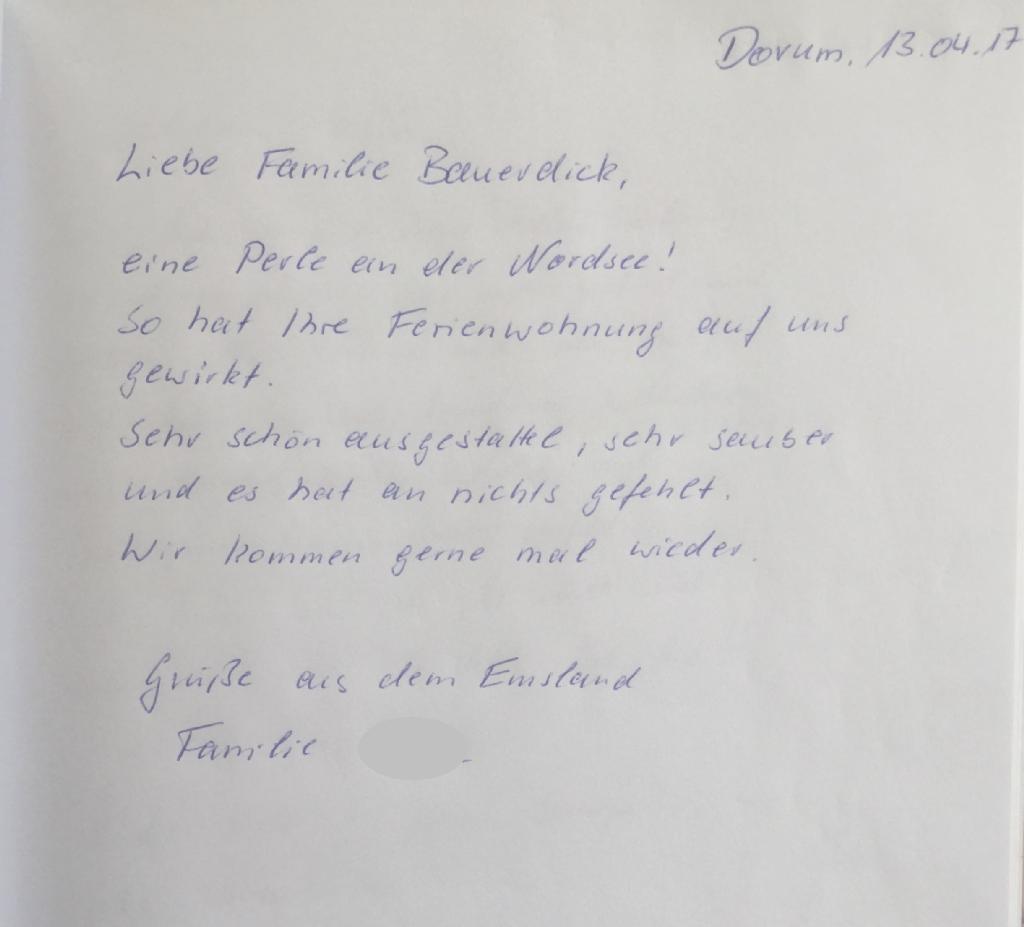 Dorum, 13.04.17
Liebe Familie Bauerdick,
eine Perle an der Nordsee!
So hat Ihre Ferienwohnung auf uns
gewirkt.
Sehr schön ausgestattet, sehr sauber
und es hat an nichts gefehlt.
Wir kommen gerne mal wieder.
Grüße aus dem Emsland
Familie